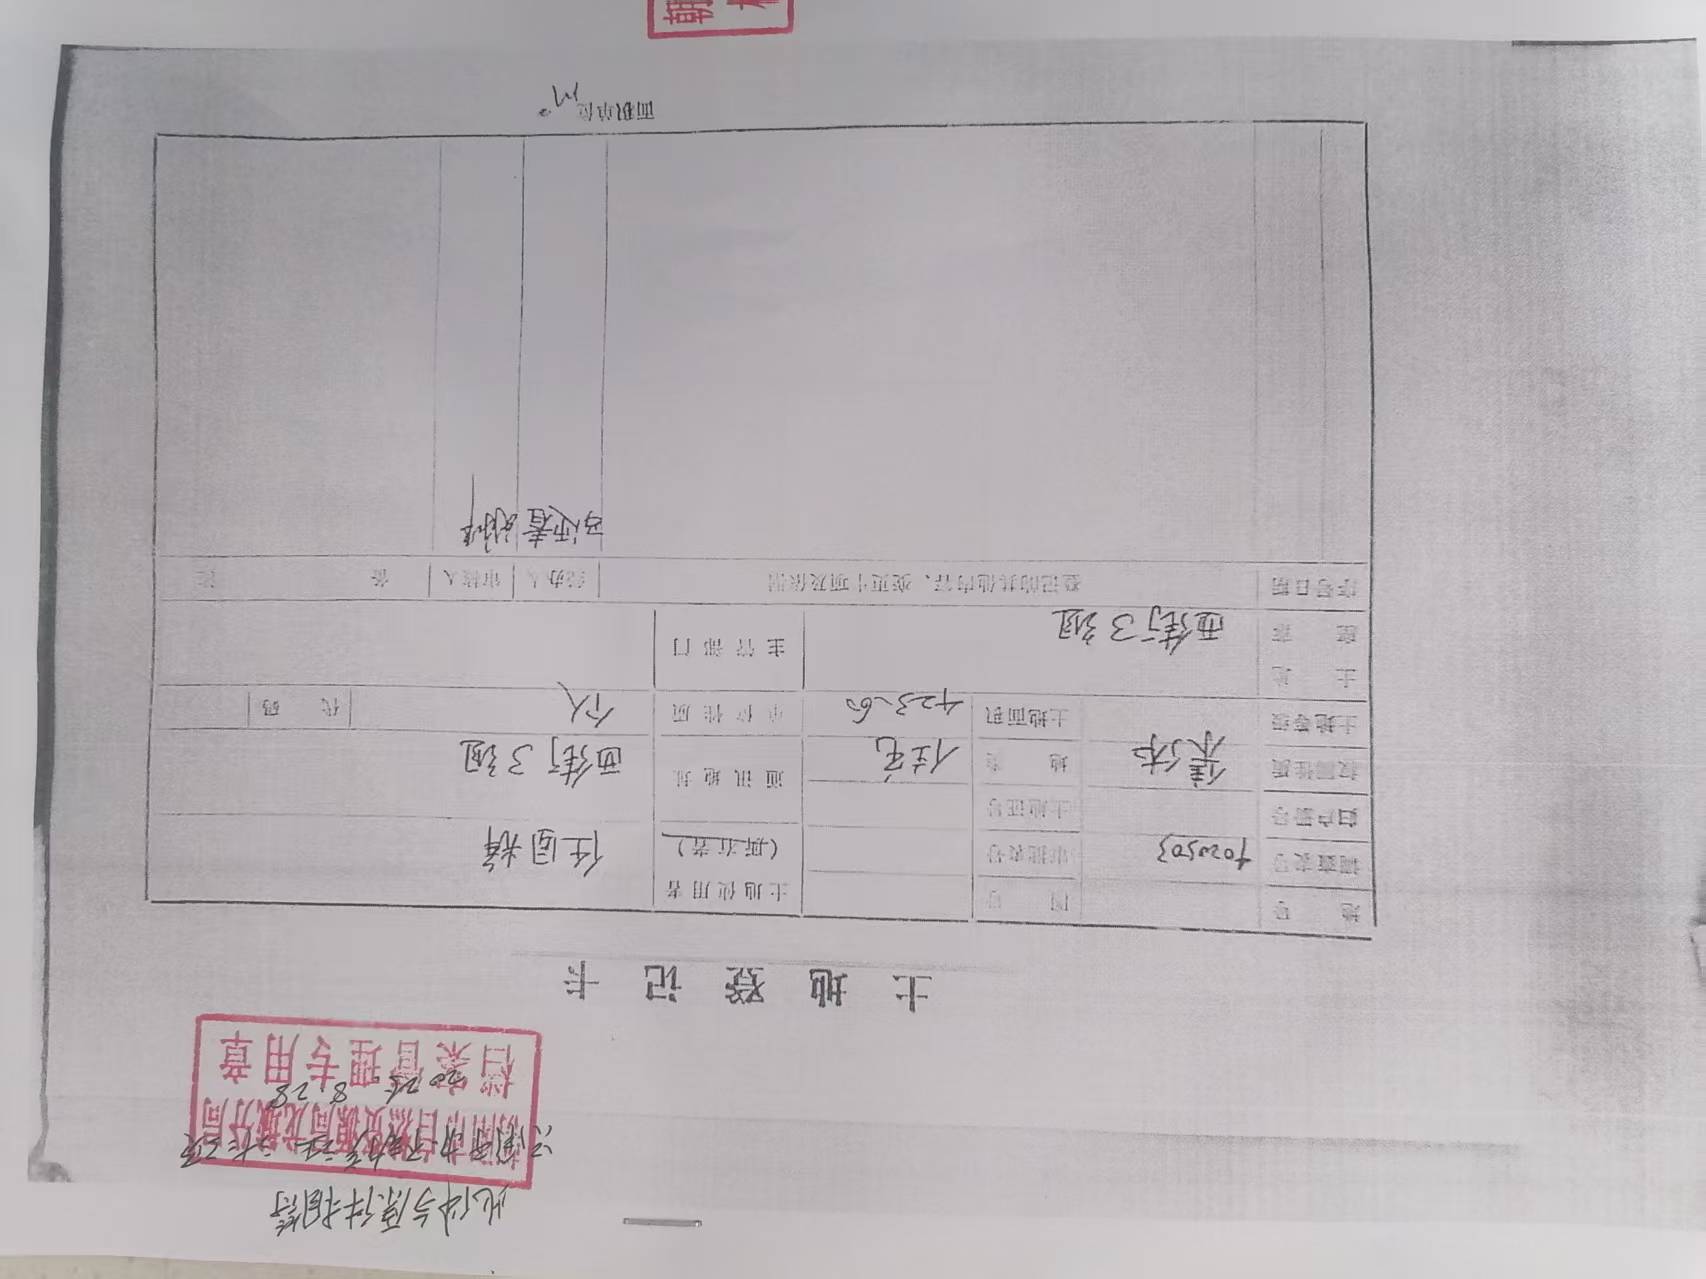 此件与原件相符
朝阳市自然资源局龙城分局
2025 8.28
档案管理专用章
土地登记卡
地号 图号 土地使用者
调查表号 4020503 审批表号 (所有者) 任国
归户册号 土地证号
权属性质 集体 地类 住宅 通讯地址 西街3组
土地等级 土地面积 423.60 单位性质 个人 代码
土地座落 西街3组 主管部门
序号 日期 登记的其他内容、变更事项及依据 经办人 审核人 备注
面积单位 M²
朝